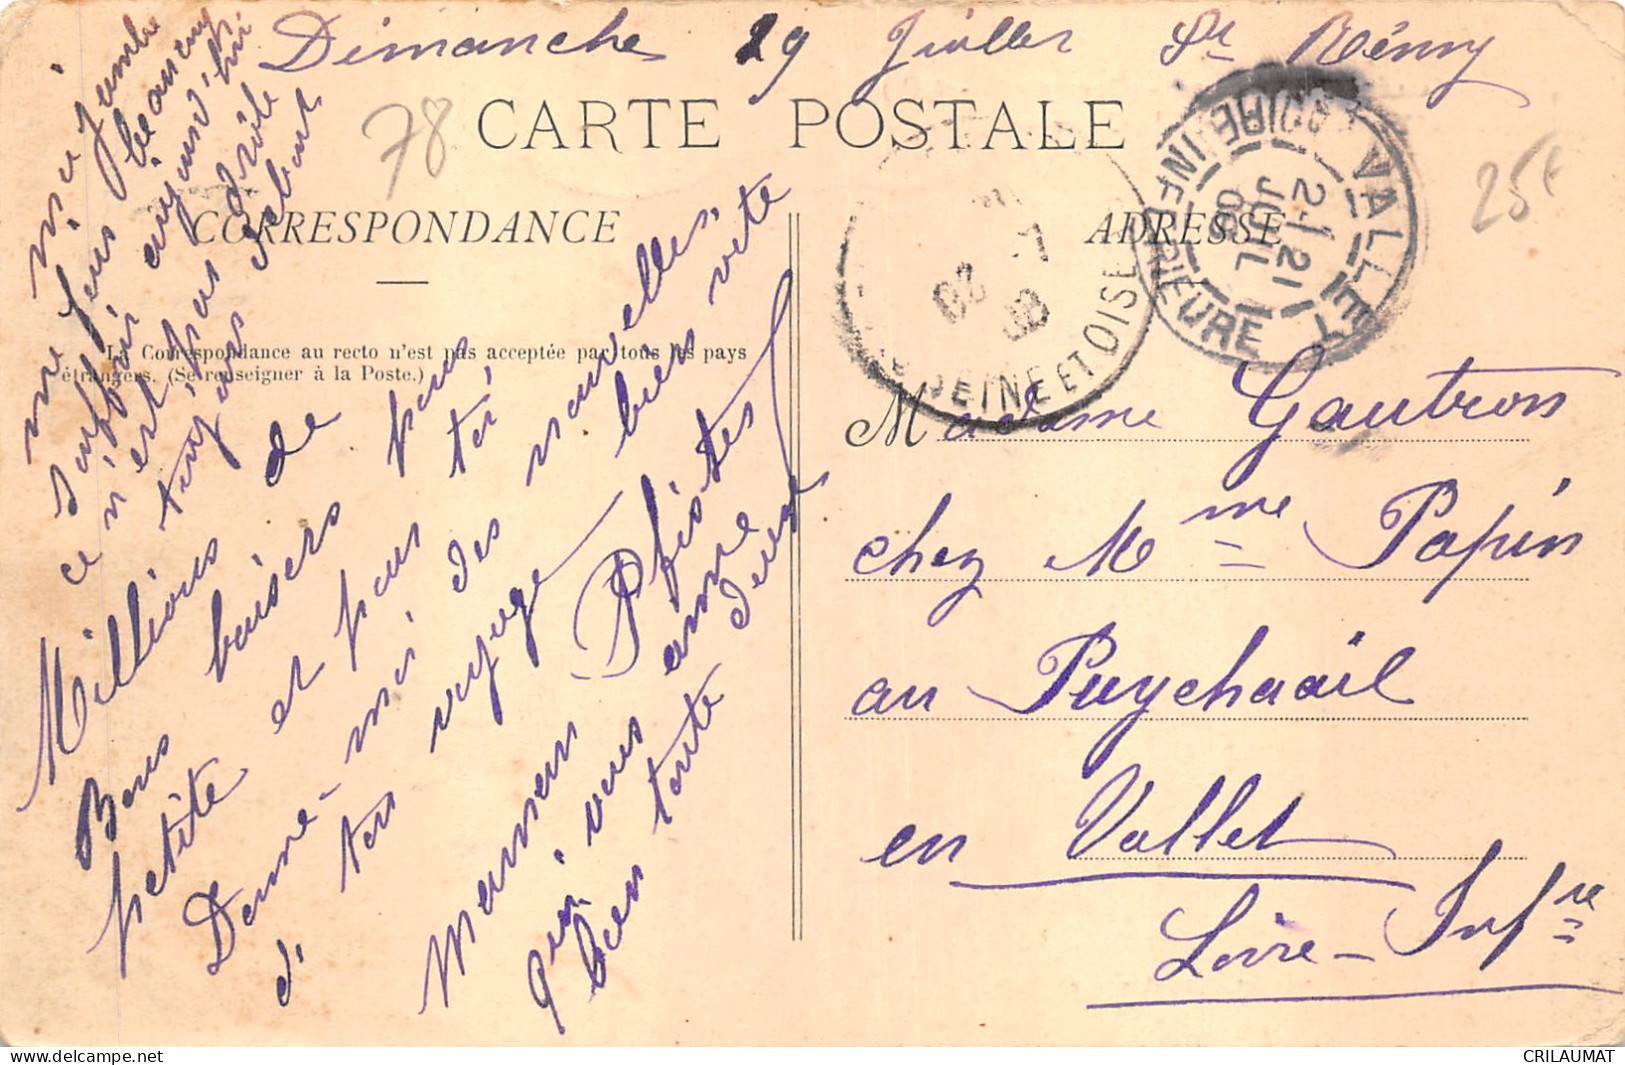 Dimanche 29 Juillet St Rémy
78
CARTE POSTALE
25€
CORRESPONDANCE
ADRESSE
La Correspondance au recto n'est pas acceptée par tous les pays
étrangers. (Se renseigner à la Poste.)
VALLET
LOIRE INFÉRIEURE
21
JUIL
06
SEINE ET OISE
Millions de
Bons baisers pour
petite et pour toi
Donne-moi des nouvelles
d' ton voyage bien vite
Maman Pfister
qui vous aime
bien toute deux
ma jambe
me fais beaucoup
souffrir aujourd'hui
ce n'est pas drôle
toujours debout
Madame Gautron
chez Mme Papin
au Puychaail
en Vallet
Loire-Infre
CRILAUMAT